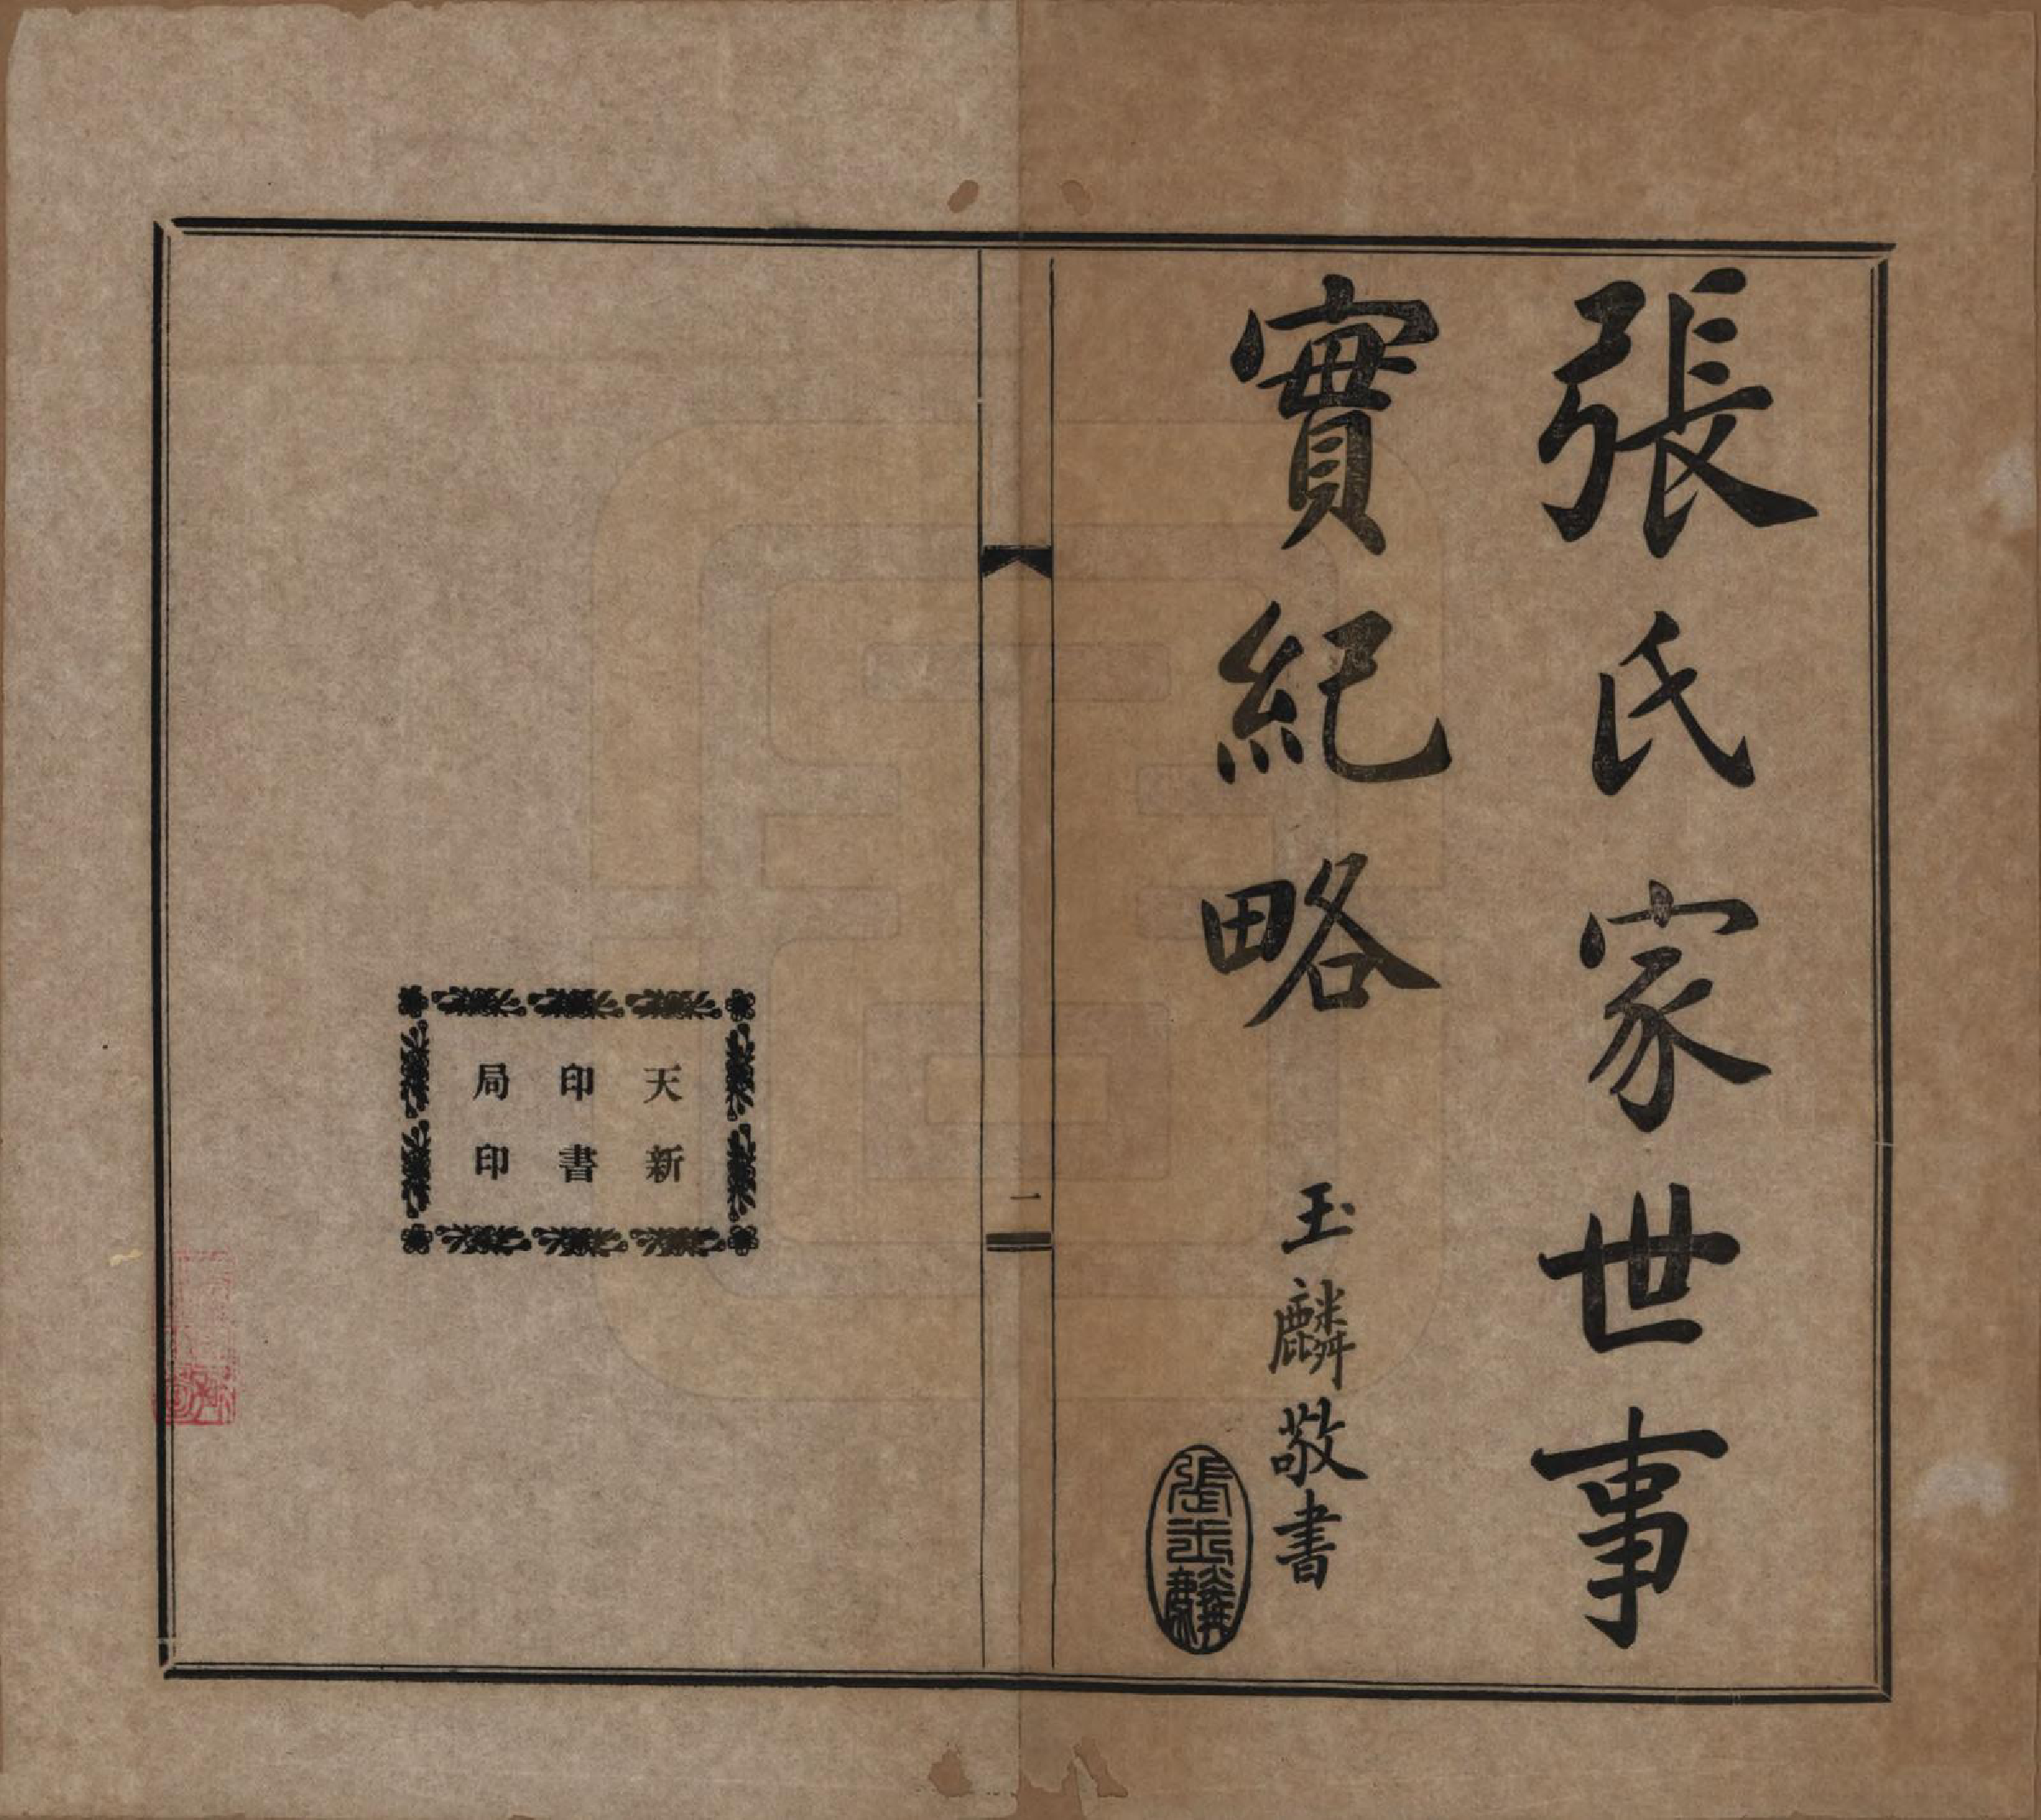 張氏家世事
實紀略
玉麟敬書
張玉麟
一
天新
印書
局印